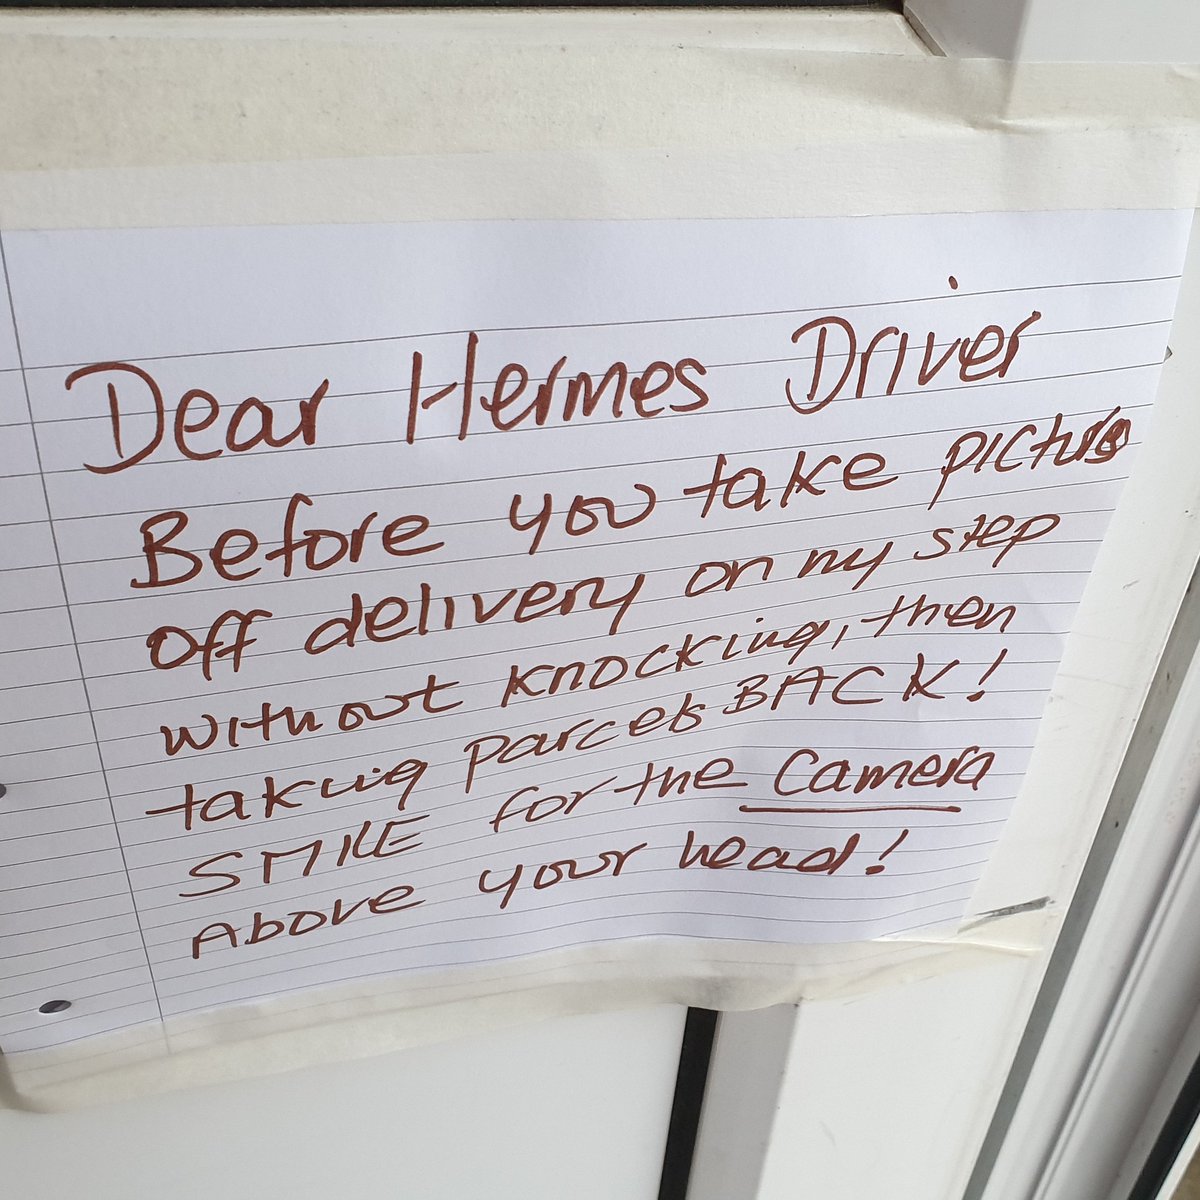 Dear Hermes Driver
Before you take pictures
off delivery on my step
without knocking, then
taking parcels BACK!
SMILE for the camera
Above your head!